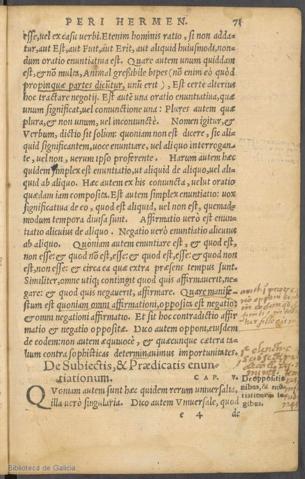 PERI HERMEN. 71
esse, vel ex casu verbi. Etenim hominis ratio, si non adda-
tur, aut Est, aut Fuit, aut Erit, aut aliquid huiusmodi, non-
dum oratio enuntiativa est. Quare autem unum quiddam
est, & nō multa, Animal gressibile bipes (nō enim eò quòd
propinquæ partes dicūtur, unū erit), Est certè alterius
hoc tractare negotij. Est autē una oratio enuntiativa, quæ
unum significat, vel coniunctione una: Plures autem quæ
plura, & non unum, vel inconiunctè. Nomen igitur, &
Verbum, dictio sit solùm: quoniam non est dicere, sic ali-
quid significantem, voce enuntiare, vel aliquo interrogan-
te, vel non, verum ipso proferente. Harum autem hæc
quidem simplex est enuntiatio, ut aliquid de aliquo, vel ali-
quid ab aliquo. Hæc autem ex his coniuncta, velut oratio
quædam iam composita. Est autem simplex enuntiatio: vox
significativa de eo, quod est aliquid, vel non est, quemad-
modum tempora divisa sunt. Affirmatio verò est enun-
tiatio alicuius de aliquo. Negatio verò enuntiatio alicuius
ab aliquo. Quoniam autem enuntiare est, & quod est,
non esse: & quod nō est, esse: & quod est, esse: & quod non
est, non esse: & circa ea quæ extra præsens tempus sunt.
Similiter, omne utiq; contingit quod quis affirmaverit, ne-
gare: & quod quis negaverit, affirmare. Quare manife-
stum est quoniam omni affirmationi, opposita est negatio:
& omni negationi affirmatio. Et sit hoc contradictio affir
matio & negatio oppositæ. Dico autem opponi, eiusdem
de eodem: non autem æquivocè, & quæcunque cætera ta-
lium contra sophisticas determinavimus importunitates.
De Subiectis, & Prædicatis enun-
tiationum. CAP. V.
De oppositio
nibus, & enu
tiationum le
gibus.
Quoniam autem sunt hæc quidem rerum universalia,
illa verò singularia. Dico autem Universale, quod
e 4 de
Biblioteca de Galicia